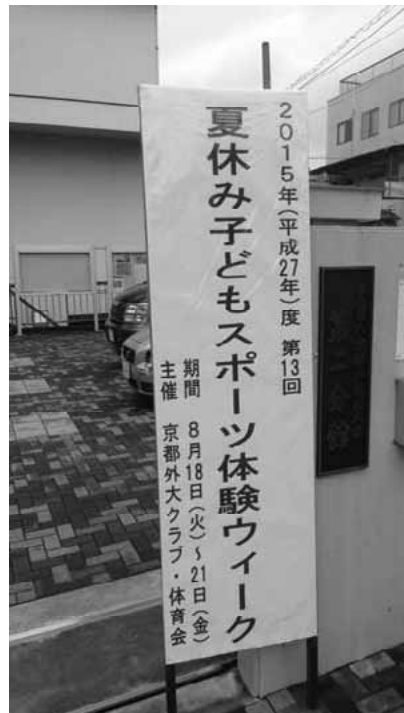 2015年(平成27年)度 第13回
夏休み子どもスポーツ体験ウィーク
期間 8月18日(火)～21日(金)
主催 京都外大クラブ・体育会